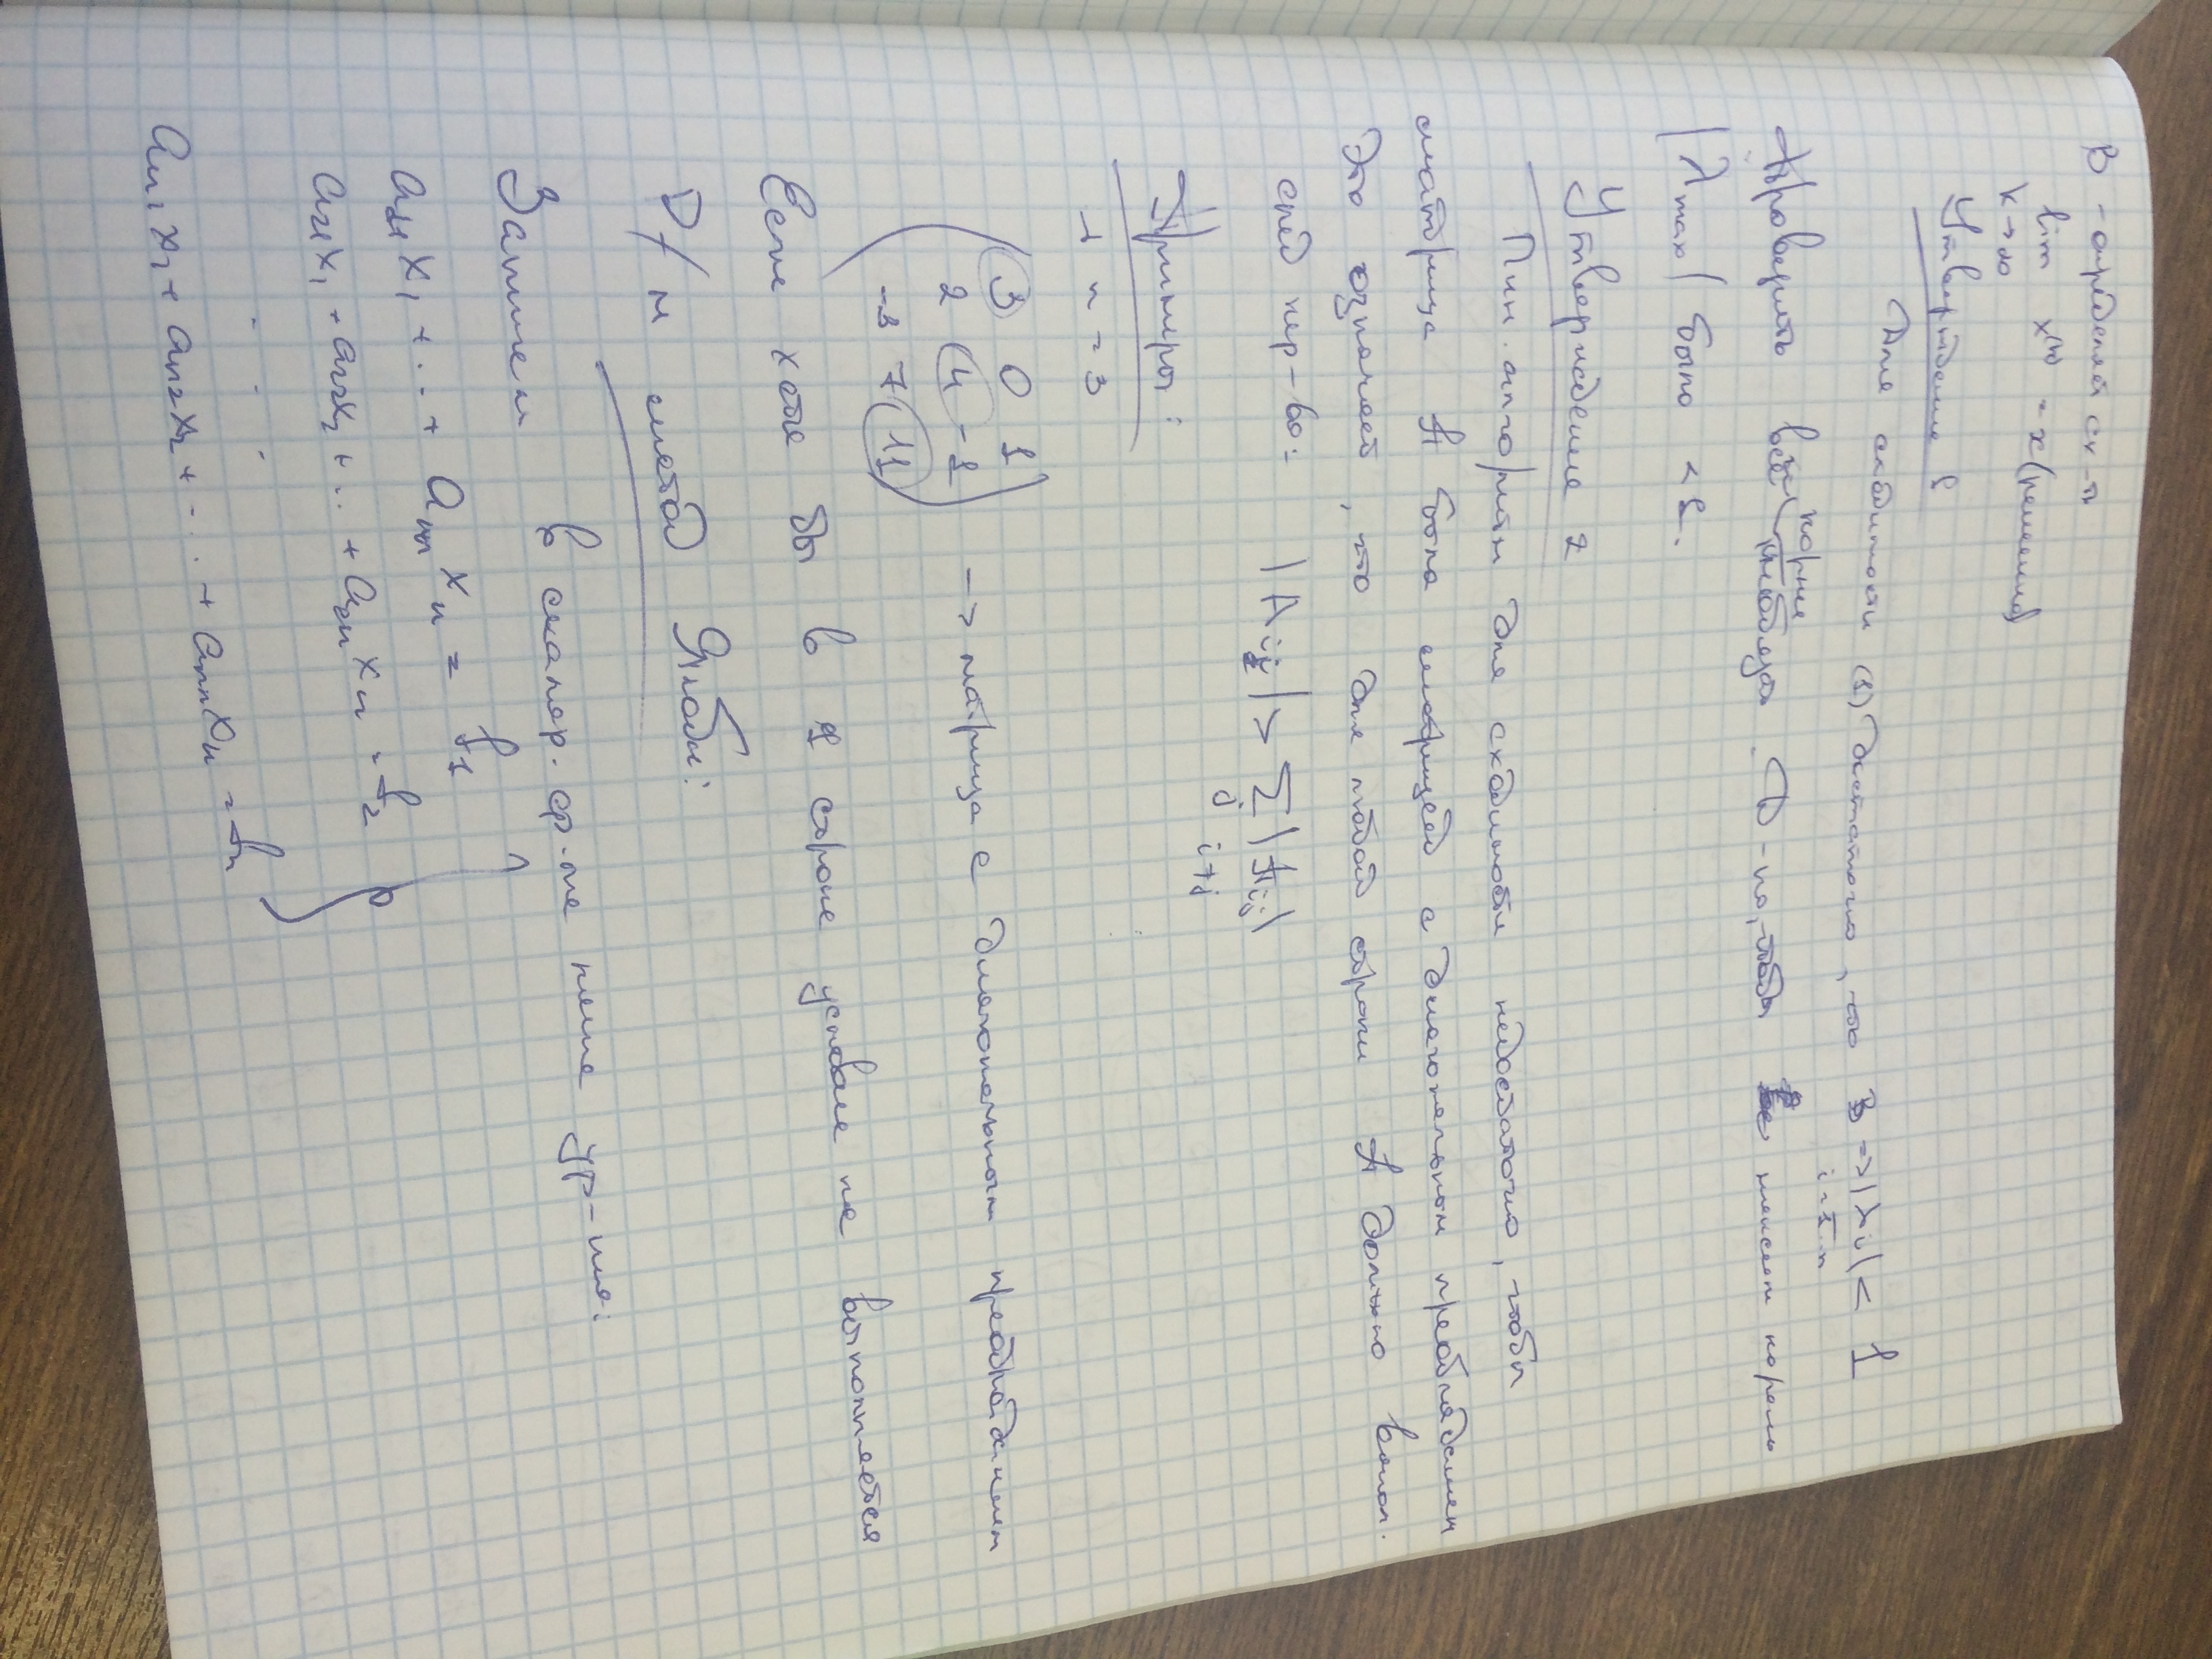 B - определяет сх-ть
lim x⁽ᵏ⁾ = x (решение)
k→∞
Утверждение 1
Для сходимости (1) достаточно, что B => |λi| < 1
i=1,n
корни
Проверить все необязат. D-но, чтобы макс корень
|λmax| было < 1.
Утверждение 2
Лин. алгоритм для сходимости недостаточно, чтобы
матрица A была матрицей с диагональным преобладанием
Это означает, что для любой строки A должно выпол.
след нер-во: |Aii| > Σ |Aij|
j i≠j
Примеры:
1 n = 3
3 0 1
2 4 -1
-3 7 11
→ матрица с диагональным преобладанием
Если хотя бы в 1 строке условие не выполняется
D/м метод Якоби:
Запишем в скаляр. ф-ме наше ур-ние:
a11 x1 + ... + a1n xn = f1
a21 x1 + a22 x2 + ... + a2n xn = f2
. . .
an1 x1 + an2 x2 + ... + ann xn = fn